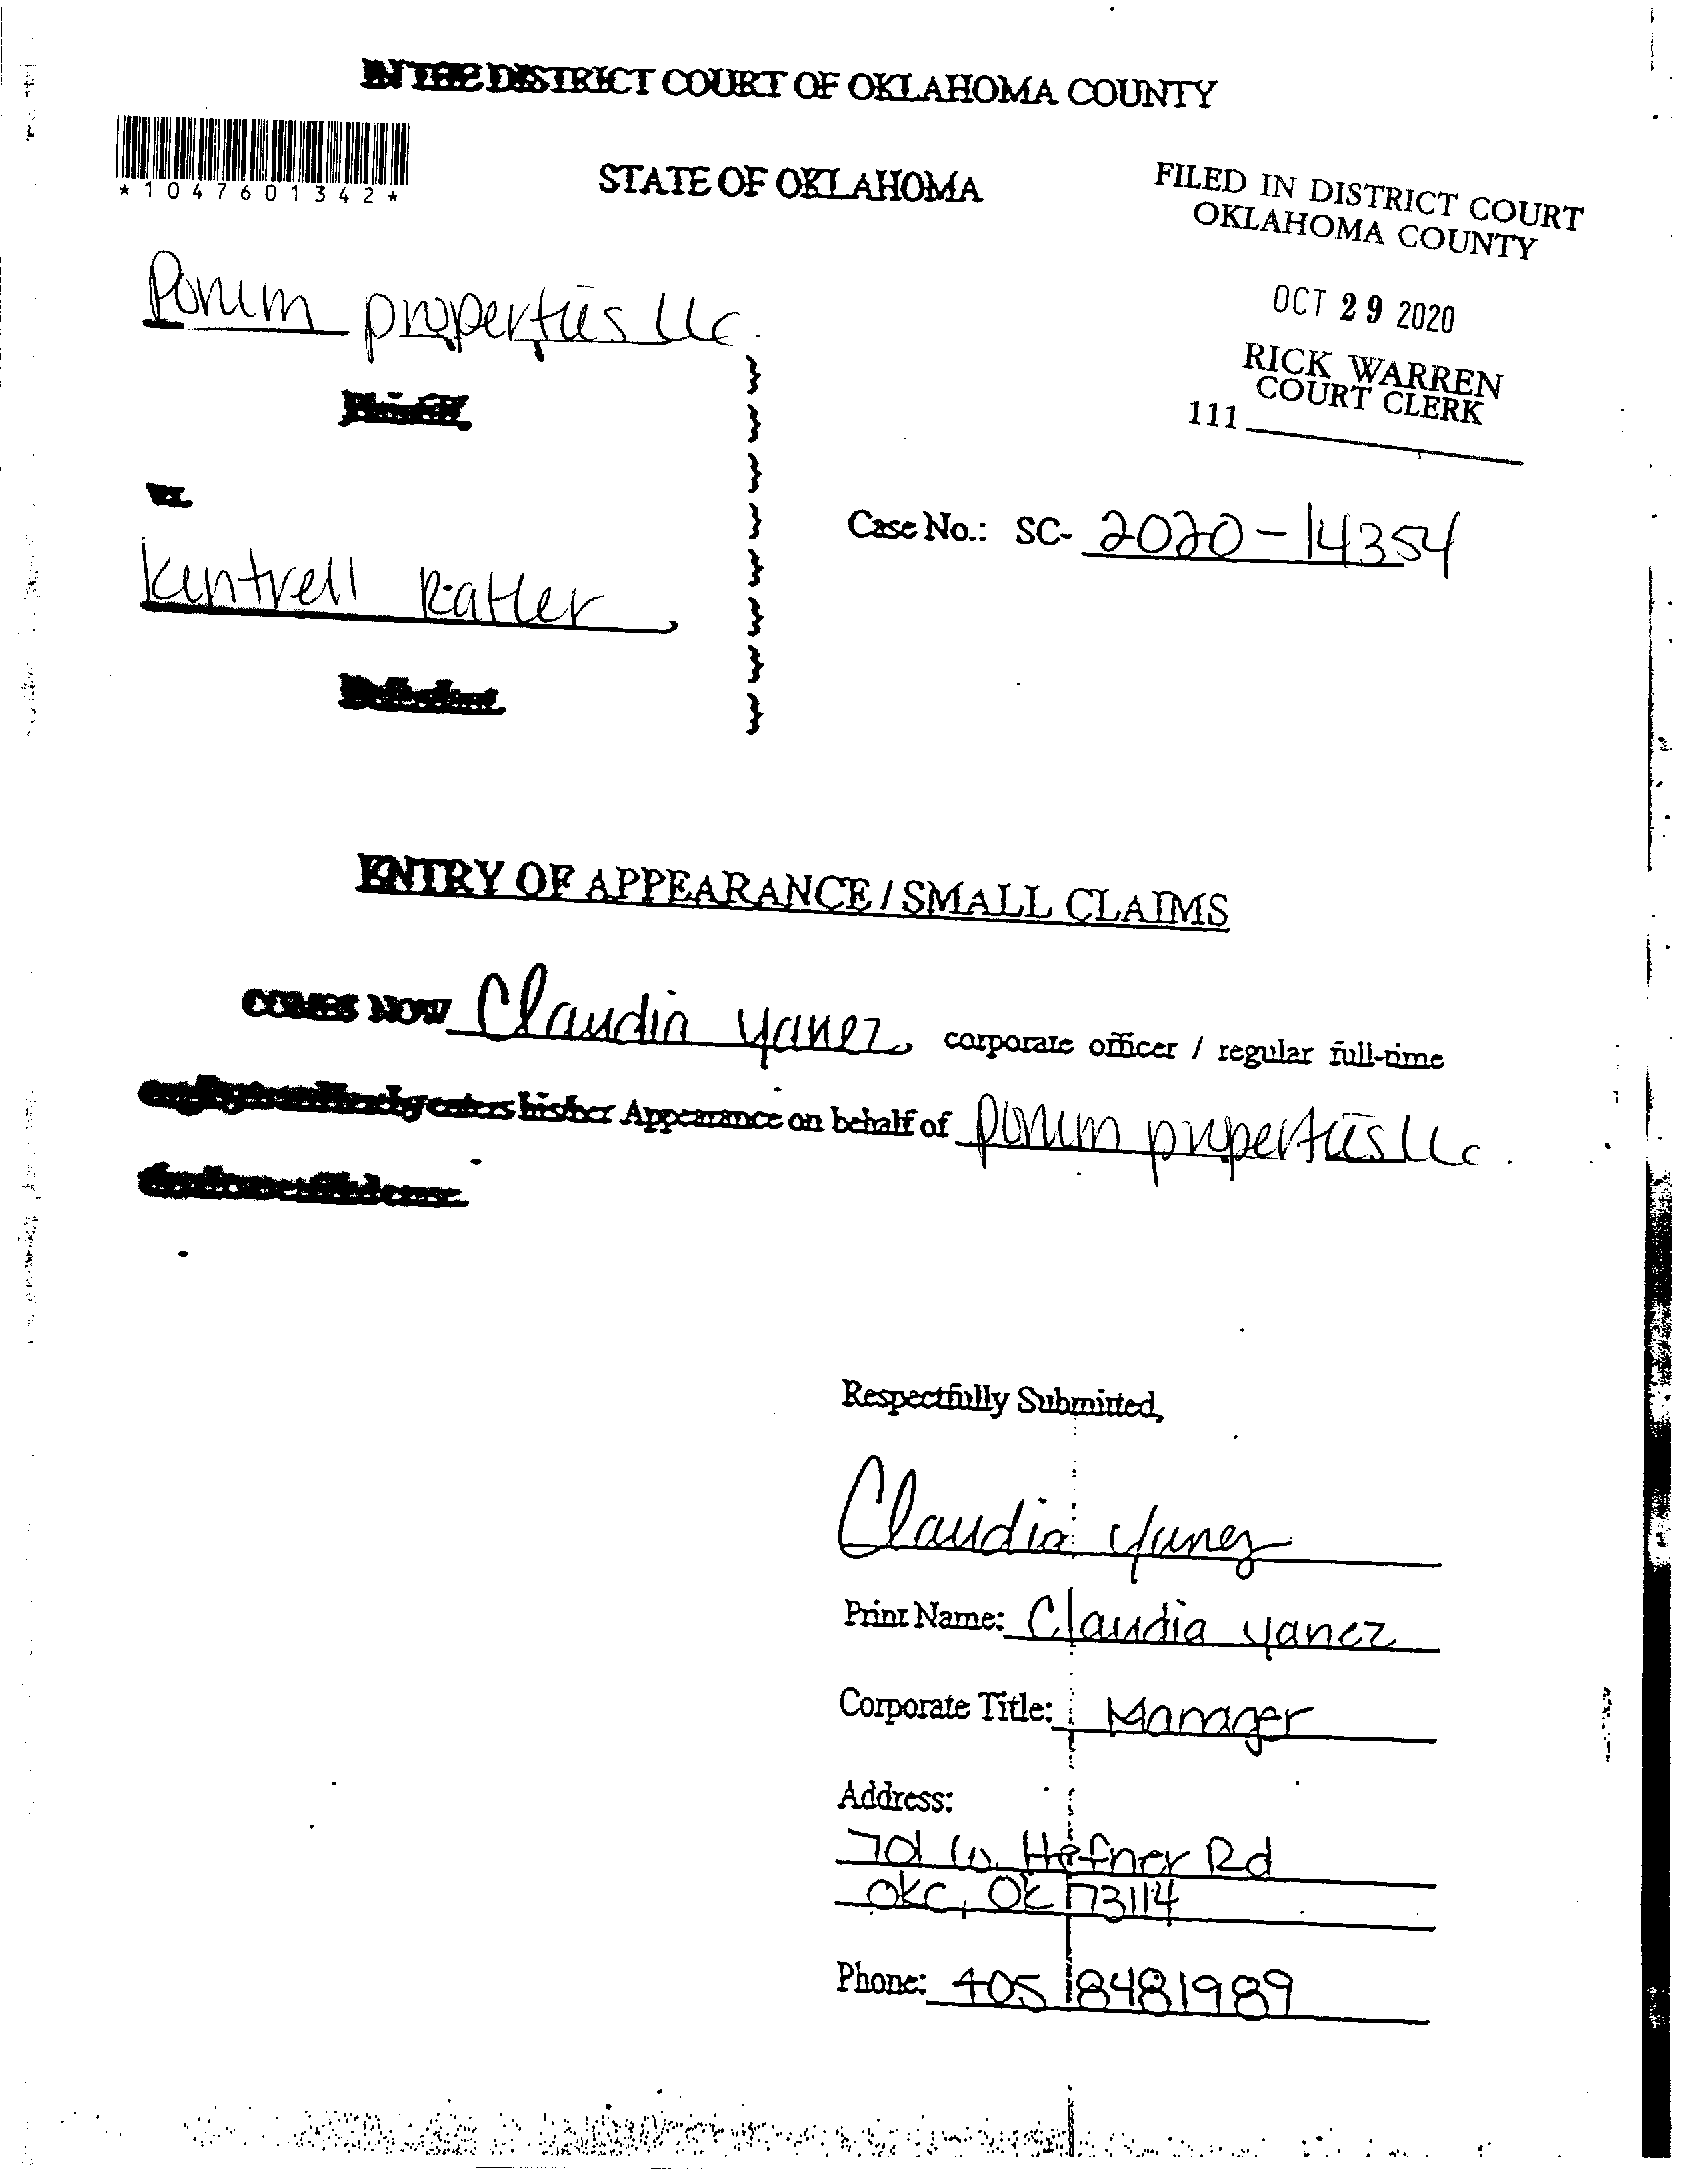 IN THE DISTRICT COURT OF OKLAHOMA COUNTY
*1047601342*
STATE OF OKLAHOMA
FILED IN DISTRICT COURT
OKLAHOMA COUNTY
OCT 29 2020
RICK WARREN
COURT CLERK
111
properties llc.
Plaintiff
vs.
Kentrell
Defendant
Case No.: SC- 2020-14354
ENTRY OF APPEARANCE / SMALL CLAIMS
COMES NOW Claudia Yanez, corporate officer / regular full-time
enters his/her Appearance on behalf of properties llc.
Respectfully Submitted,
Claudia Yanez
Print Name: Claudia Yanez
Corporate Title: Manager
Address:
701 W. Hefner Rd
OKC, OK 73114
Phone: 405 8481989